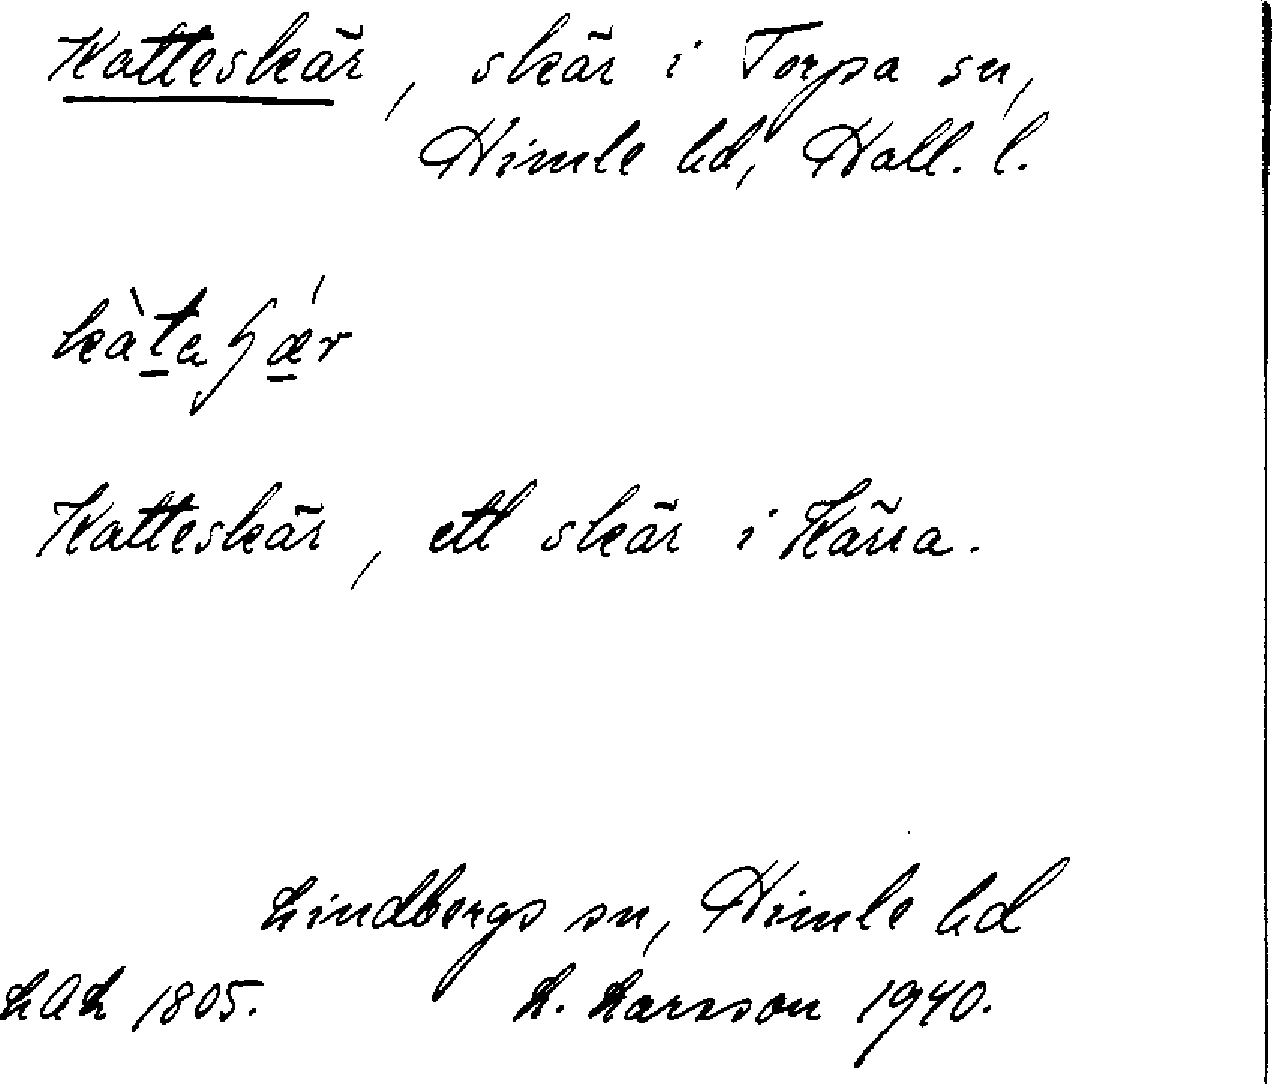 Katteskär, skär i Torpa sn,
Himle hd, Hall. l.
kàtaʃǽr
Katteskär, ett skär i Kärra.
Lindbergs sn, Himle hd
LAL 1805. L. Larsson 1940.